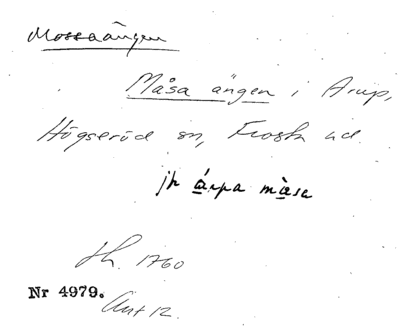 Mossaängen
Måsa ängen i Arup,
Högseröd sn, Frosta hd.
jfr årpa måsa
Lh. 1760
Nr 4979.
Ant 12.